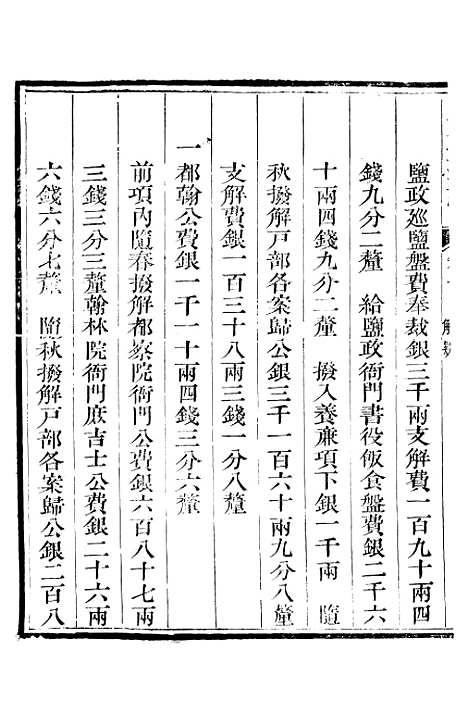 鹽政廵鹽盤費奉裁銀三千兩支解費一百九十兩四
錢九分二釐　給鹽政衙門書役飯食盤費銀二千六
十兩四錢九分二釐　撥入養亷項下銀一千兩　隨
秋撥解戸部各案歸公銀三千一百六十兩九分八釐
支解費銀一百三十八兩三錢一分八釐
一都翰公費銀一千一十兩四錢三分六釐
前項内隨春撥解都察院衙門公費銀六百八十七兩
三錢三分三釐翰林院衙門庶吉士公費銀二十六兩
六錢六分七釐　隨秋撥解戸部各案歸公銀二百八